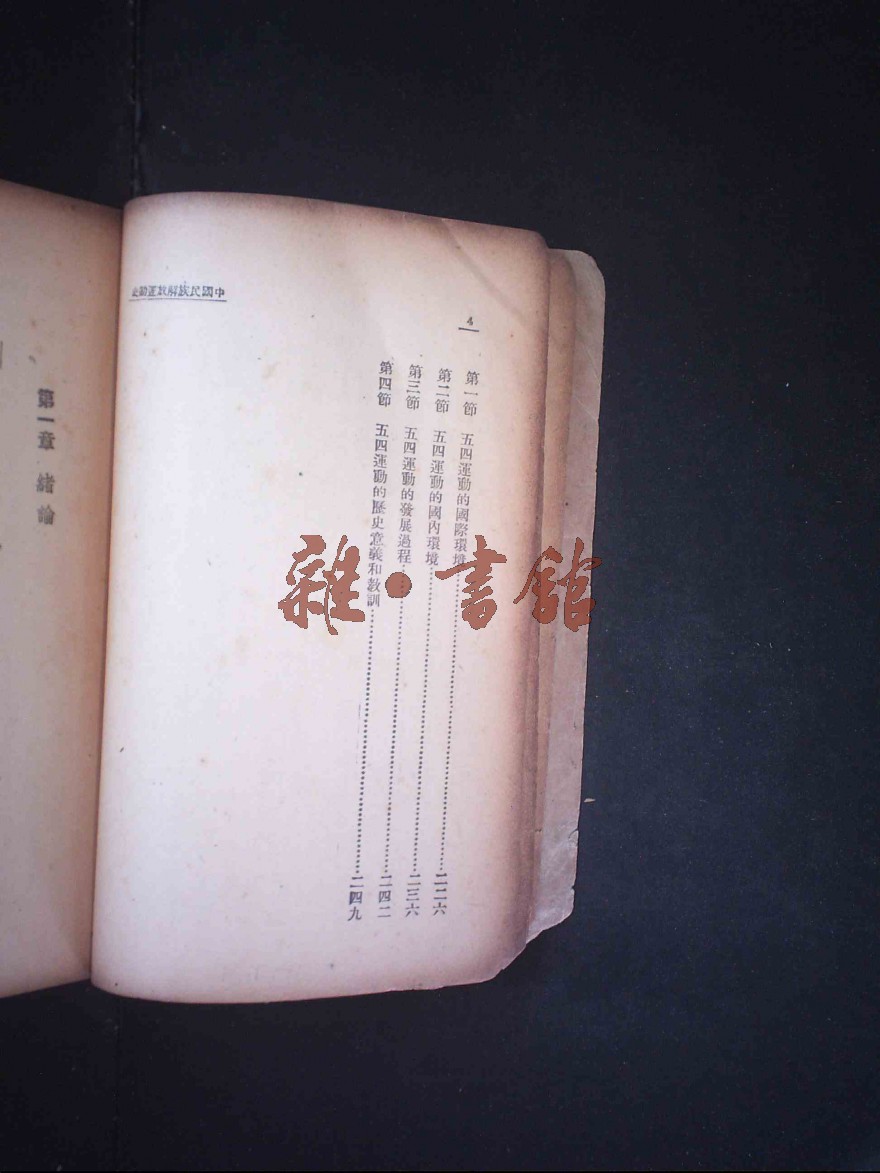 4
中國民族解放運動史
第一節　五四運動的國際環境……二二六
第二節　五四運動的國內環境……二三六
第三節　五四運動的發展過程……二四二
第四節　五四運動的歷史意義和教訓……二四九
第一章　緒論
雜·書館